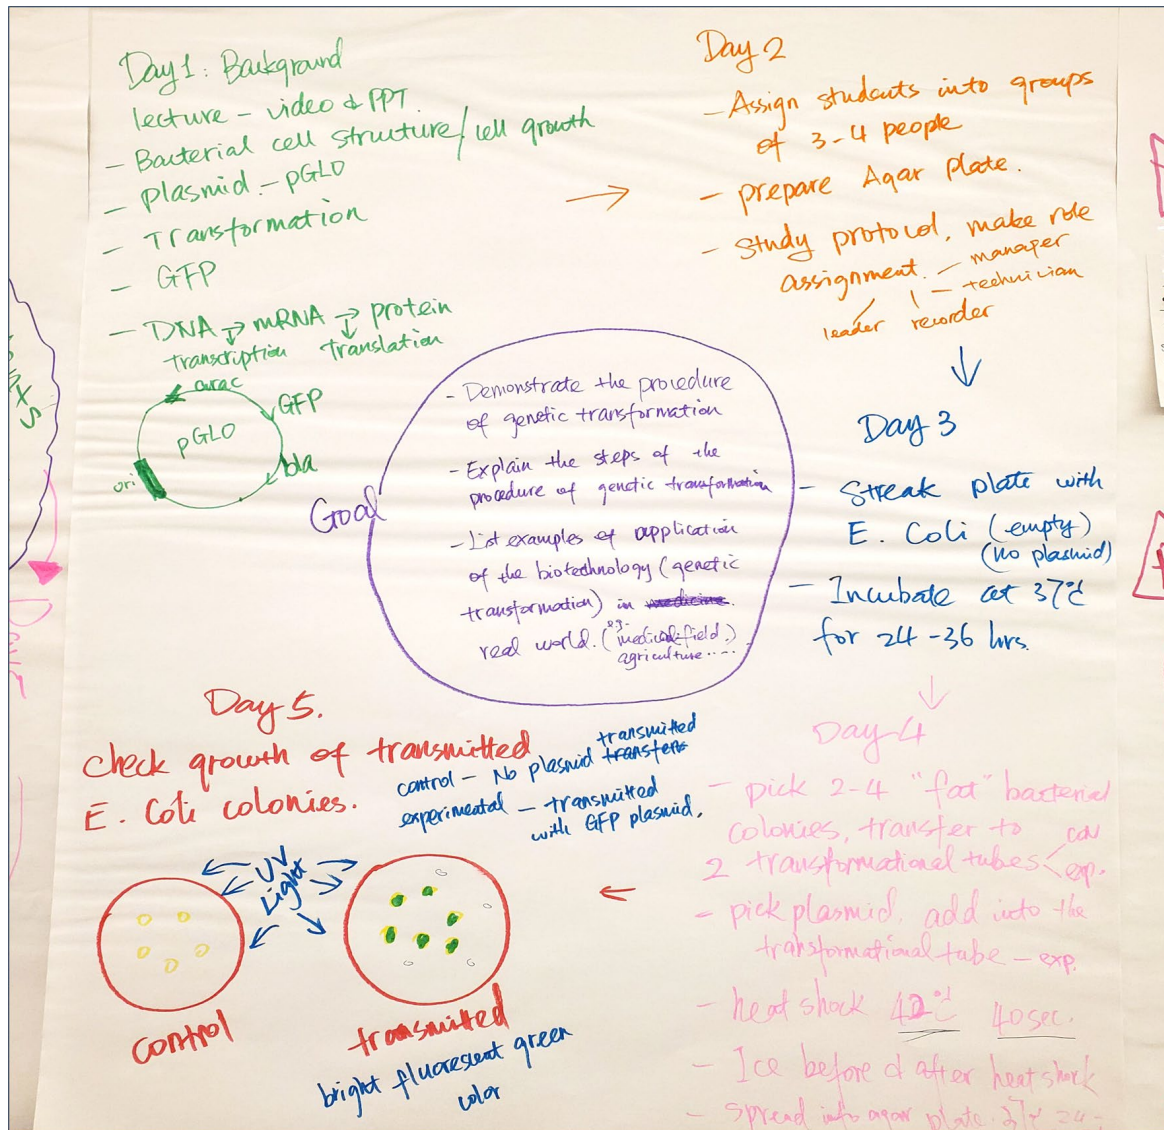 Day 1: Background
lecture - video & PPT.
- Bacterial cell structure/cell growth
- Plasmid - pGLO
- Transformation
- GFP
- DNA → mRNA → protein
transcription translation
arac
GFP
pGLO
bla
ori
Day 2
- Assign students into groups
of 3-4 people
- prepare Agar Plate.
- Study protocol, make role
assignment. - manager
- technician
leader recorder
Goal
- Demonstrate the procedure
of genetic transformation
- Explain the steps of the
procedure of genetic transformation
- List examples of application
of the biotechnology (genetic
transformation) in medicine.
real world. (e.g. medical field.)
agriculture.....
Day 3
- Streak plate with
E. Coli (empty)
(no plasmid)
- Incubate at 37°C
for 24-36 hrs.
Day 4
- pick 2-4 "fat" bacterial
colonies, transfer to
2 transformational tubes < con
exp.
- pick plasmid, add into the
transformational tube - exp.
- heat shock 42°C 40 sec.
- Ice before & after heat shock
- spread into agar plate 37°C 24-
Day 5.
check growth of transmitted
E. Coli colonies.
transmitted
control - No plasmid transfers
experimental - transmitted
with GFP plasmid.
UV
Light
control
transmitted
bright fluorescent green
color